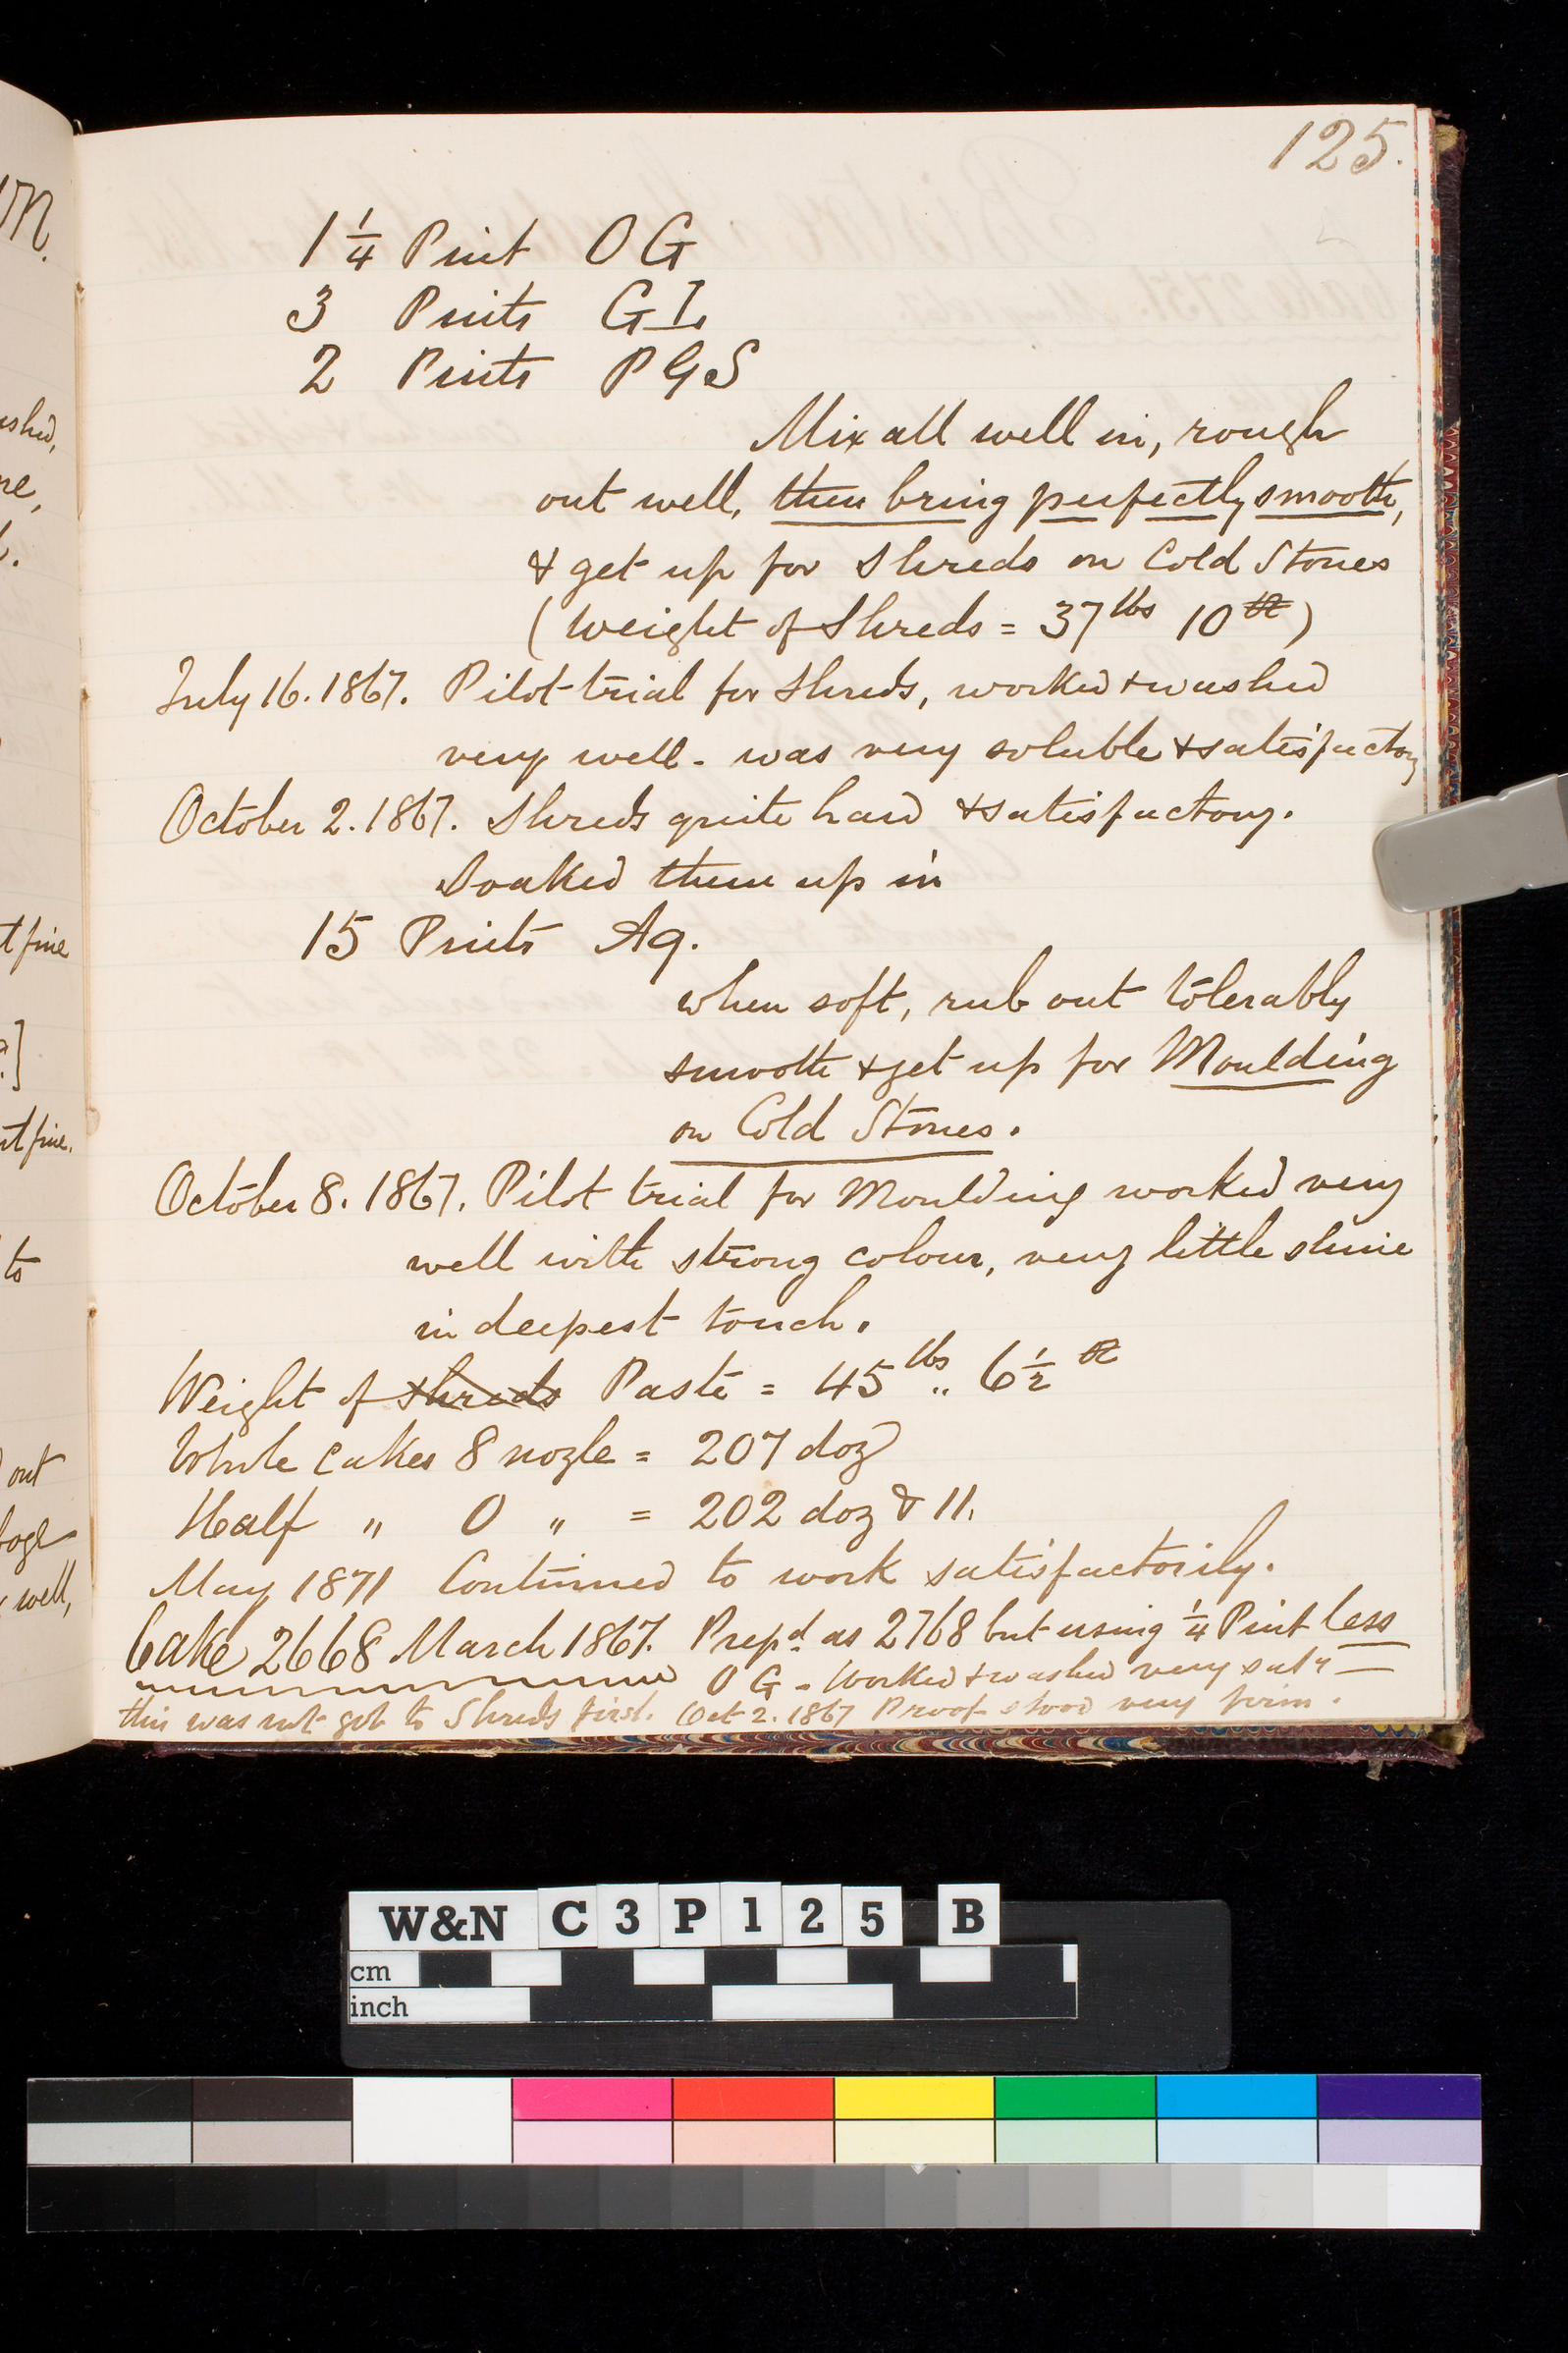 125.
1 1/4 Pint OG
3 Pints GI
2 Pints PGS
Mix all well in, rough
out well, then bring perfectly smooth,
& get up for Shreds on Cold Stones
(Weight of Shreds = 37 lbs 10 oz)
July 16. 1867. Pilot trial for Shreds, worked & washed
very well - was very soluble & satisfactory
October 2. 1867. Shreds quite hard & satisfactory.
Soaked them up in
15 Pints Aq.
when soft, rub out tolerably
smooth & get up for Moulding
on Cold Stones.
October 8. 1867. Pilot trial for Moulding worked very
well with strong colour, very little shine
in deepest touch.
Weight of shreds Paste = 45 lbs .. 6 1/2 oz
Whole Cakes 8 nozle = 207 doz
Half " 0 " = 202 doz & 11.
May 1871 Continued to work satisfactorily.
Cake 2668 March 1867. Prepd as 2768 but using 1/4 Pint less
OG - Worked & washed very satʸ
this was not got to Shreds first. Oct 2. 1867 Proof stood very firm.
t fine
to
out
well,
W&N C 3 P 1 2 5 B
cm
inch